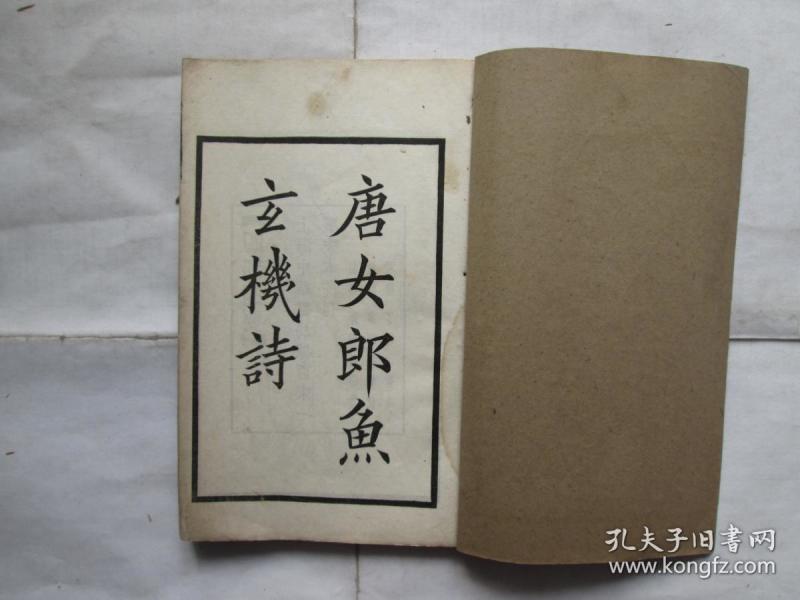 唐女郎魚
玄機詩
孔夫子旧書网
www.kongfz.com